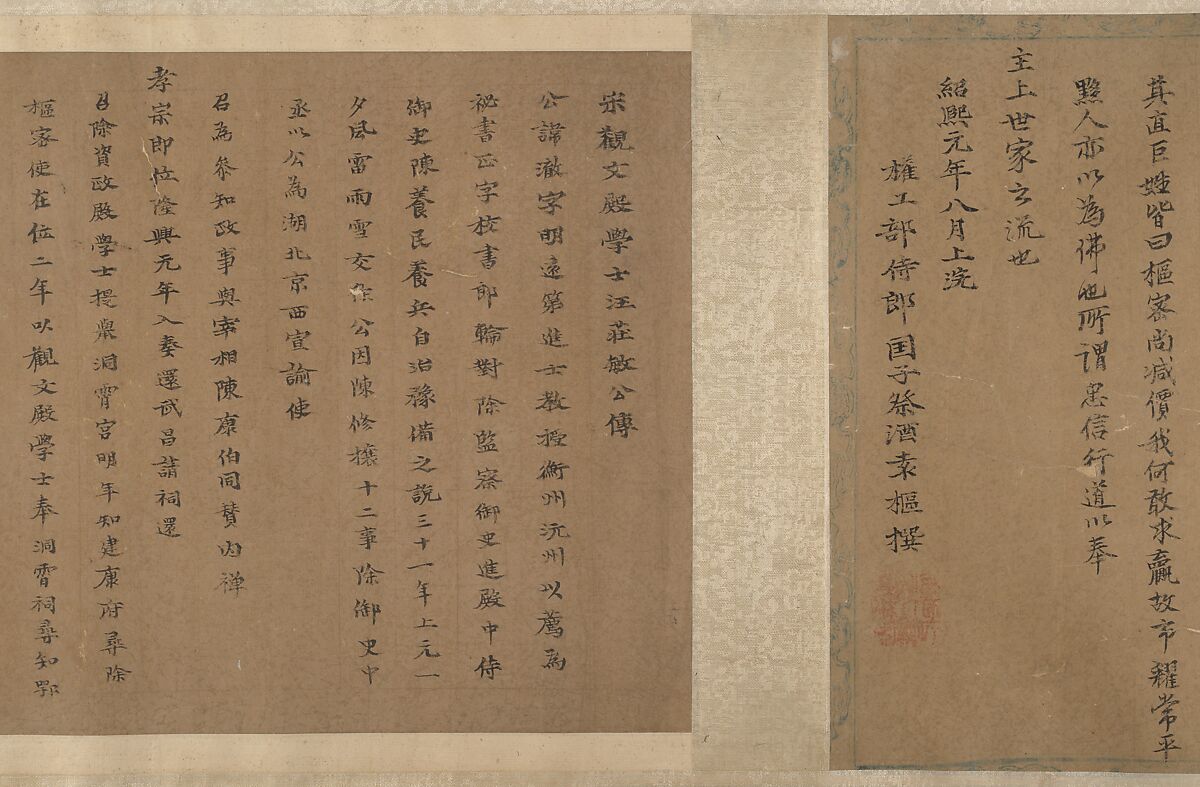 其直巨姓皆曰樞密尚减價我何敢求贏故市糴常平
黟人亦以為佛也所謂忠信行道以奉
主上世家之流也
紹熙元年八月上浣
權工部侍郎国子祭酒袁樞撰
宋觀文殿學士汪莊敏公傳
公諱澈字明遠第進士教授衡州沅州以薦為
祕書正字校書郎輪對除監察御史進殿中侍
御史陳養民養兵自治豫備之說三十一年上元一
夕風雷雨雪交作公因陳修攘十二事除御史中
丞以公為湖北京西宣諭使
召為參知政事與宰相陳康伯同賛内禅
孝宗即位隆興元年入奏還武昌請祠還
召除資政殿學士提舉洞霄宮明年知建康府尋除
樞密使在位二年以觀文殿學士奉洞霄祠尋知鄂